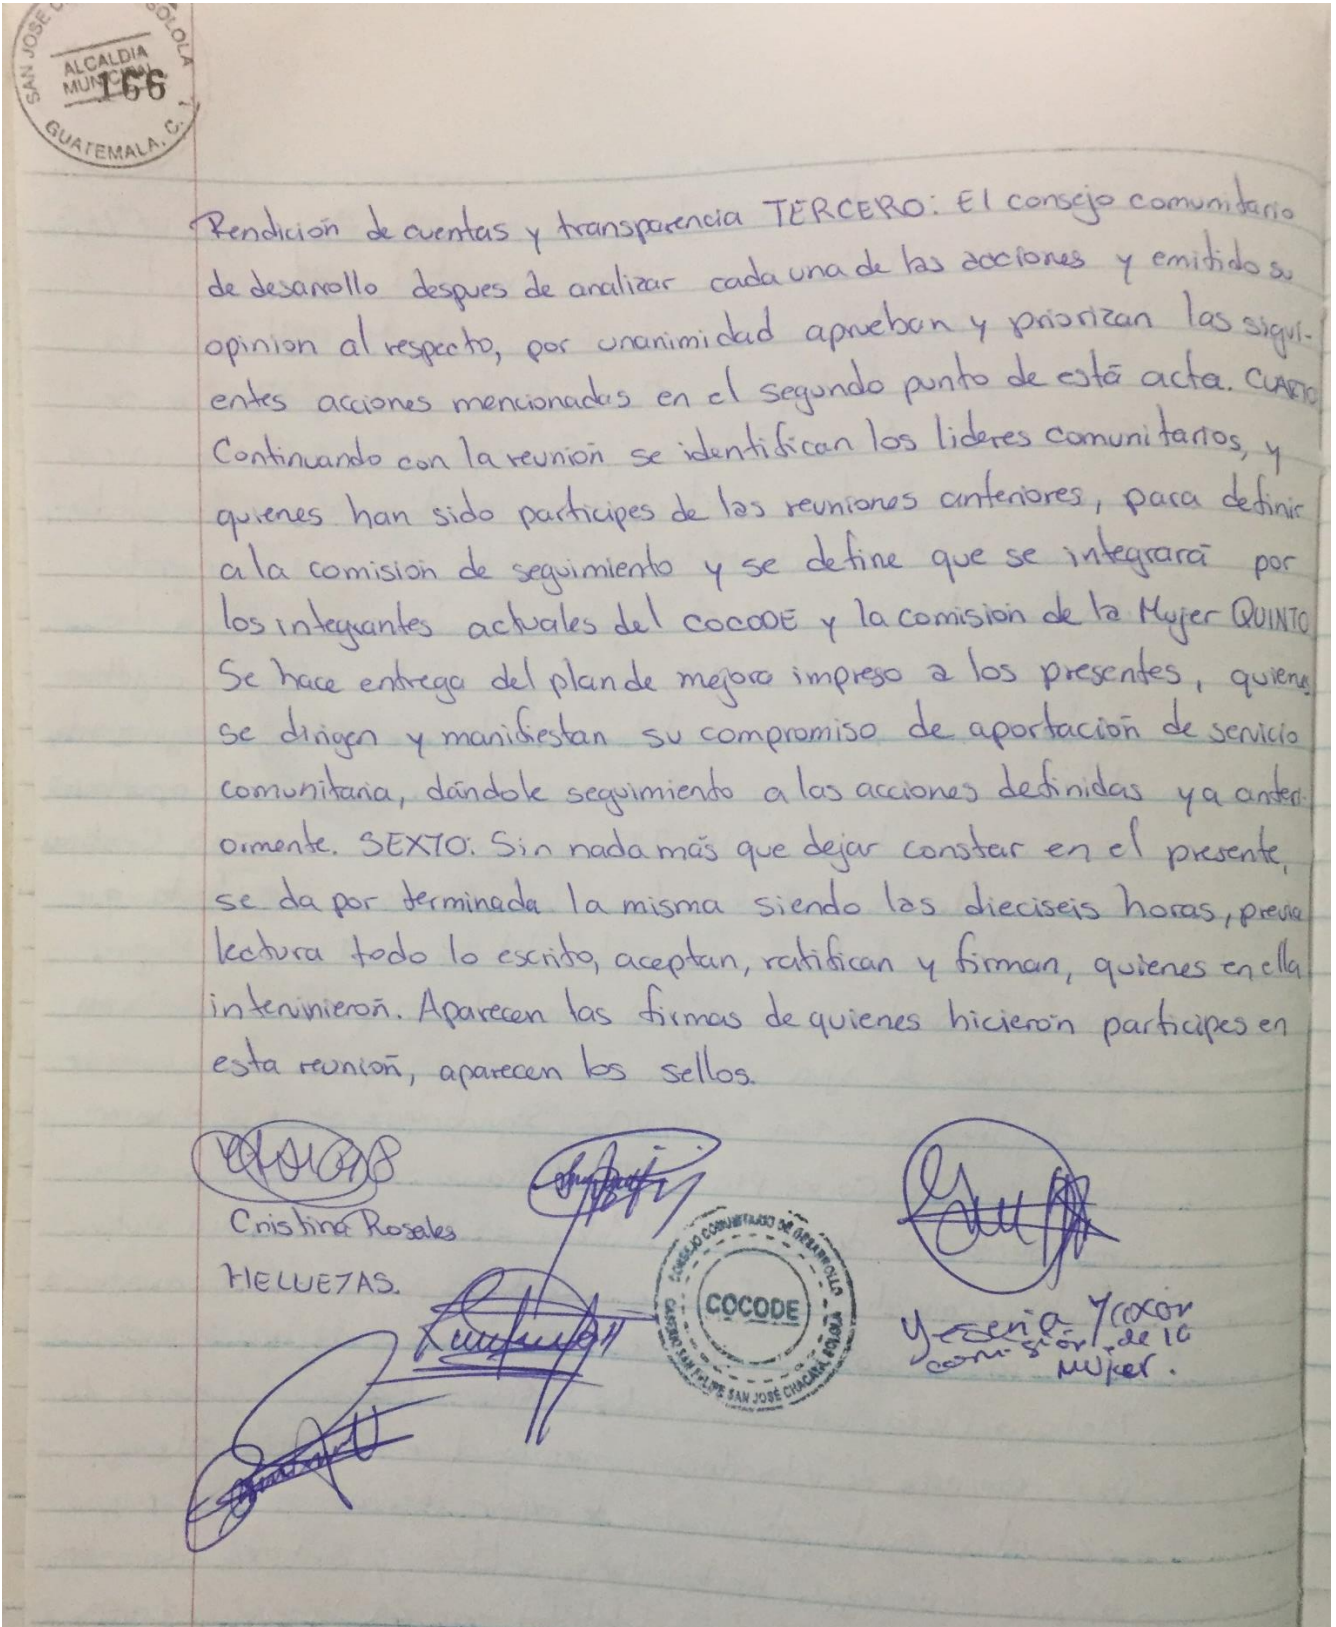 SAN JOSE SOLOLA
ALCALDIA
MUNICIPAL
166
GUATEMALA, C.
Rendición de cuentas y transparencia TERCERO: El consejo comunitario
de desarrollo despues de analizar cada una de las acciones y emitido su
opinion al respecto, por unanimidad aprueban y priorizan las sigui-
entes acciones mencionadas en el segundo punto de está acta. CUARTO
Continuando con la reunión se identifican los lideres comunitarios, y
quienes han sido participes de las reuniones anteriores, para definir
a la comisión de seguimiento y se define que se integrará por
los integrantes actuales del COCODE y la comisión de la Mujer QUINTO
Se hace entrega del plan de mejora impreso a los presentes, quienes
se dirigen y manifiestan su compromiso de aportación de servicio
comunitaria, dándole seguimiento a las acciones definidas ya anteri-
ormente. SEXTO: Sin nada más que dejar constar en el presente,
se da por terminada la misma siendo las dieciseis horas, previa
lectura todo lo escrito, aceptan, ratifican y firman, quienes en ella
intervinierón. Aparecen las firmas de quienes hicierón participes en
esta reunión, aparecen los sellos.
Cristina Rosales
HELVETAS.
CONSEJO COMUNITARIO DE DESARROLLO
COCODE
CASERIO SAN FELIPE SAN JOSÉ CHACAYÁ, SOLOLA
Yesenia Ycocor
comisión de la
Mujer.